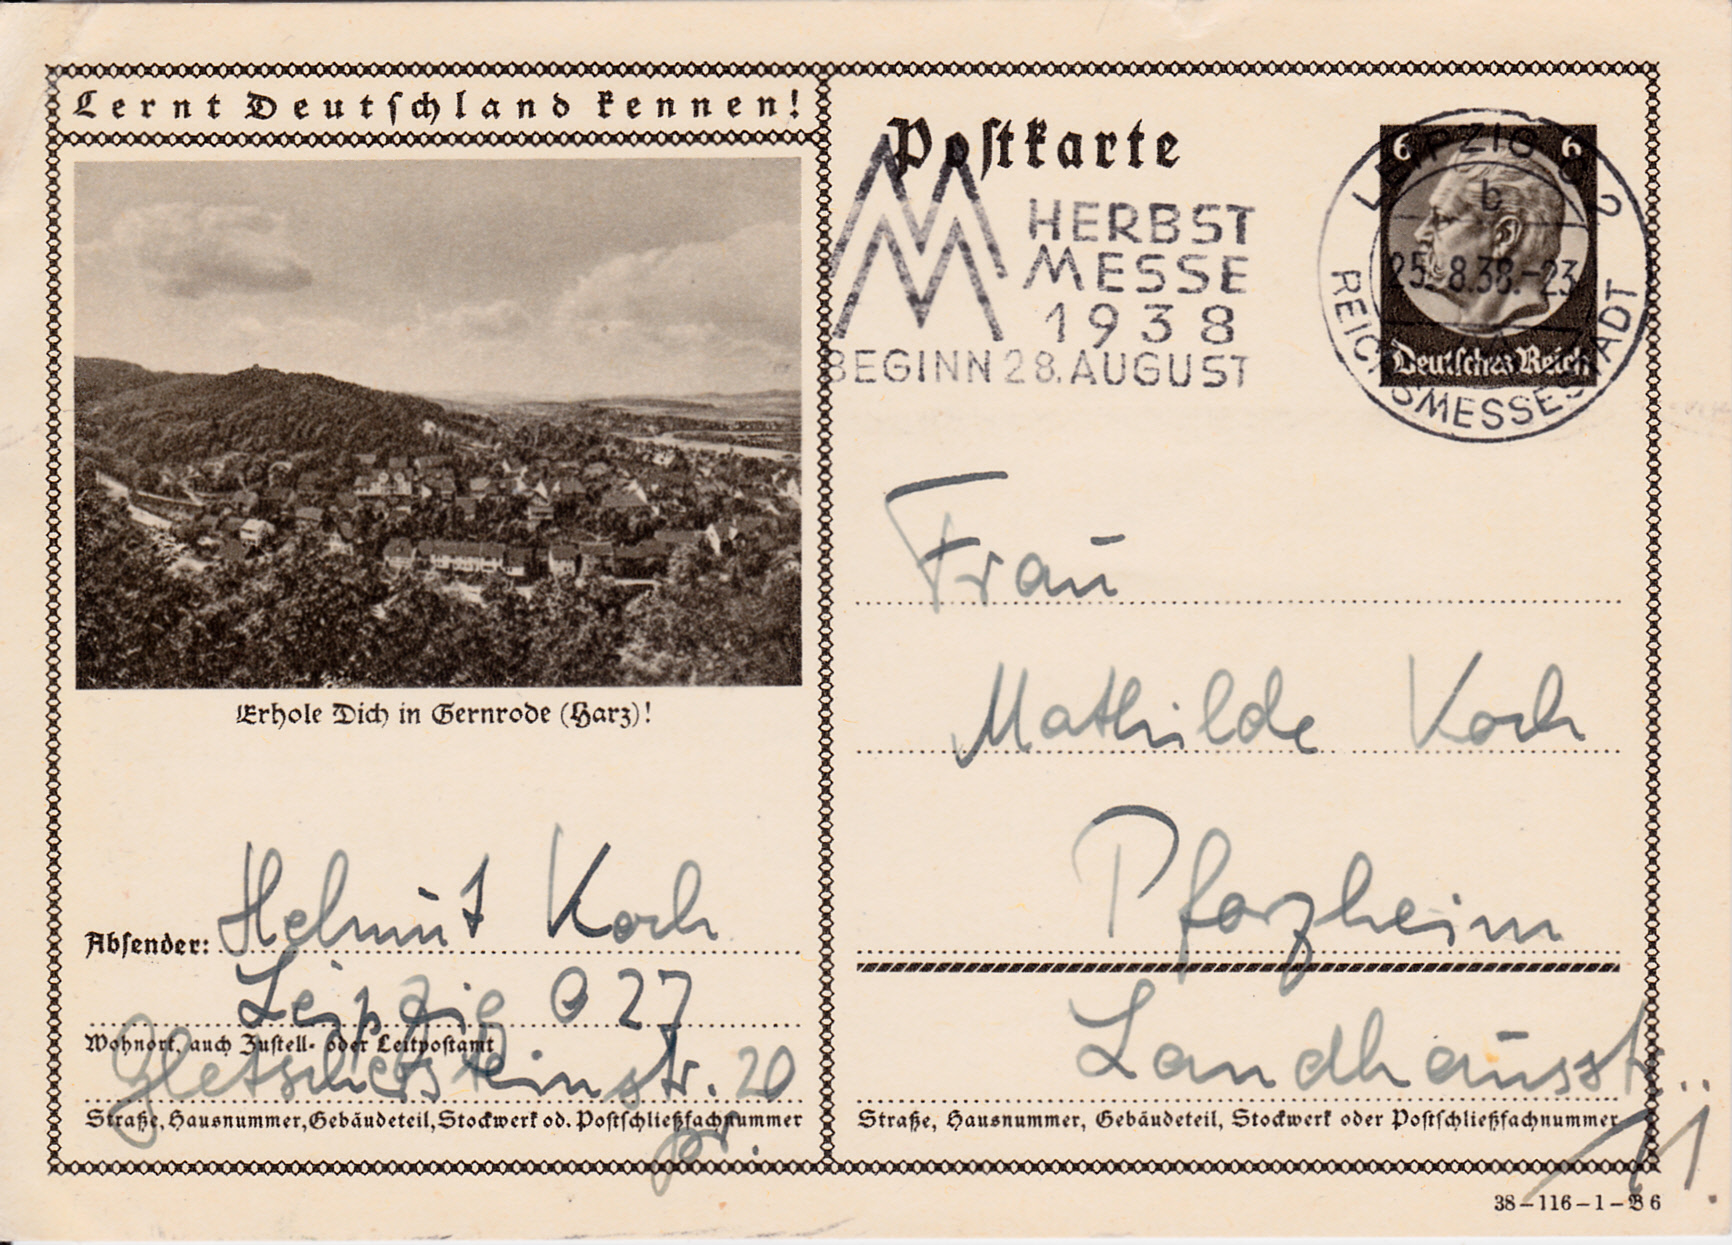 Lernt Deutschland kennen!
Erhole Dich in Gernrode (Harz)!
Absender: Helmut Koch
Leipzig O 27
Wohnort, auch Zustell- oder Leitpostamt
Gletschersteinstr. 20
Straße, Hausnummer, Gebäudeteil, Stockwerk od. Postschließfachnummer
pr.
Postkarte
HERBST
MESSE
1938
BEGINN 28. AUGUST
6 6
LEIPZIG
b
25.8.38.-23
REICHSMESSESTADT
Deutsches Reich
Frau
Mathilde Koch
Pforzheim
Landhausstr.
Straße, Hausnummer, Gebäudeteil, Stockwerk oder Postschließfachnummer
11.
38-116-1-B6